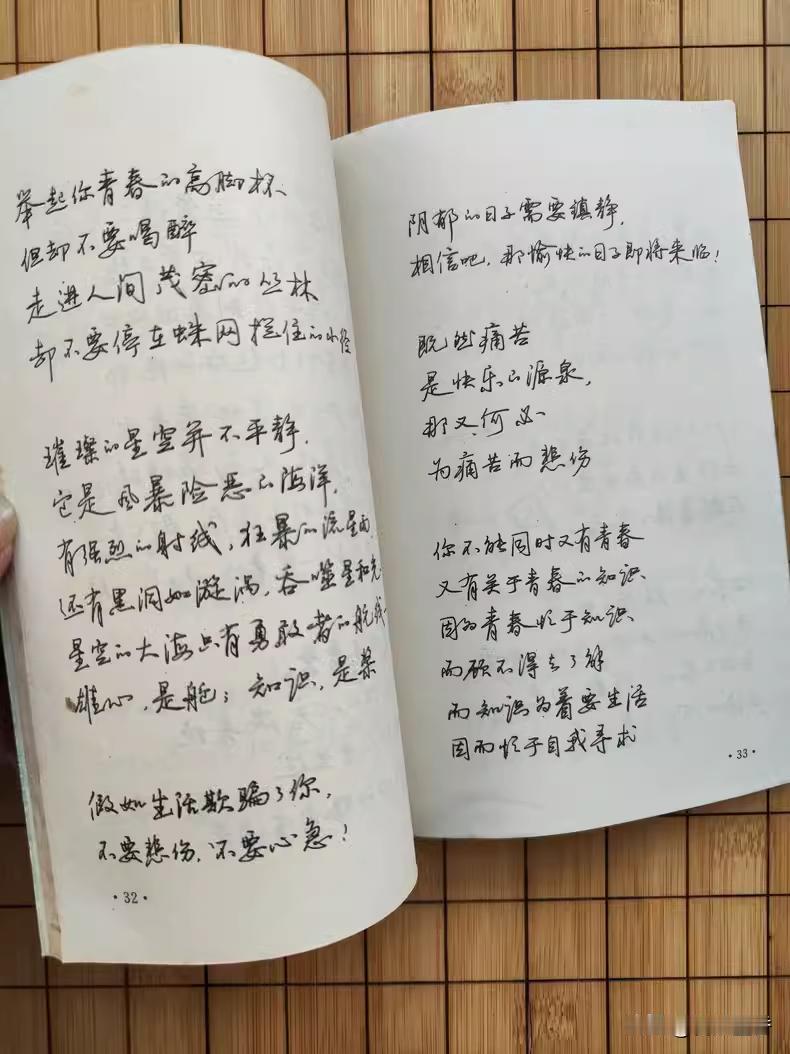 举起你青春的高脚杯、
但却不要喝醉
走进人间茂塞的丛林
却不要停在蛛网拦住的小径
璀璨的星空并不平静，
它是风暴险恶的海洋，
有强烈的射线，狂暴的流星雨
还有黑洞如漩涡，吞噬星和光
星空的大海只有勇敢者的航线
雄心，是舵；知识，是桨
假如生活欺骗了你，
不要悲伤，不要心急！
·32·
阴郁的日子需要镇静，
相信吧，那愉快的日子即将来临！
既然痛苦
是快乐的源泉，
那又何必
为痛苦而悲伤
你不能同时又有青春
又有关于青春的知识
因为青春忙于知识
而顾不得去了解
而知识为着要生活
因而忙于自我寻求
·33·